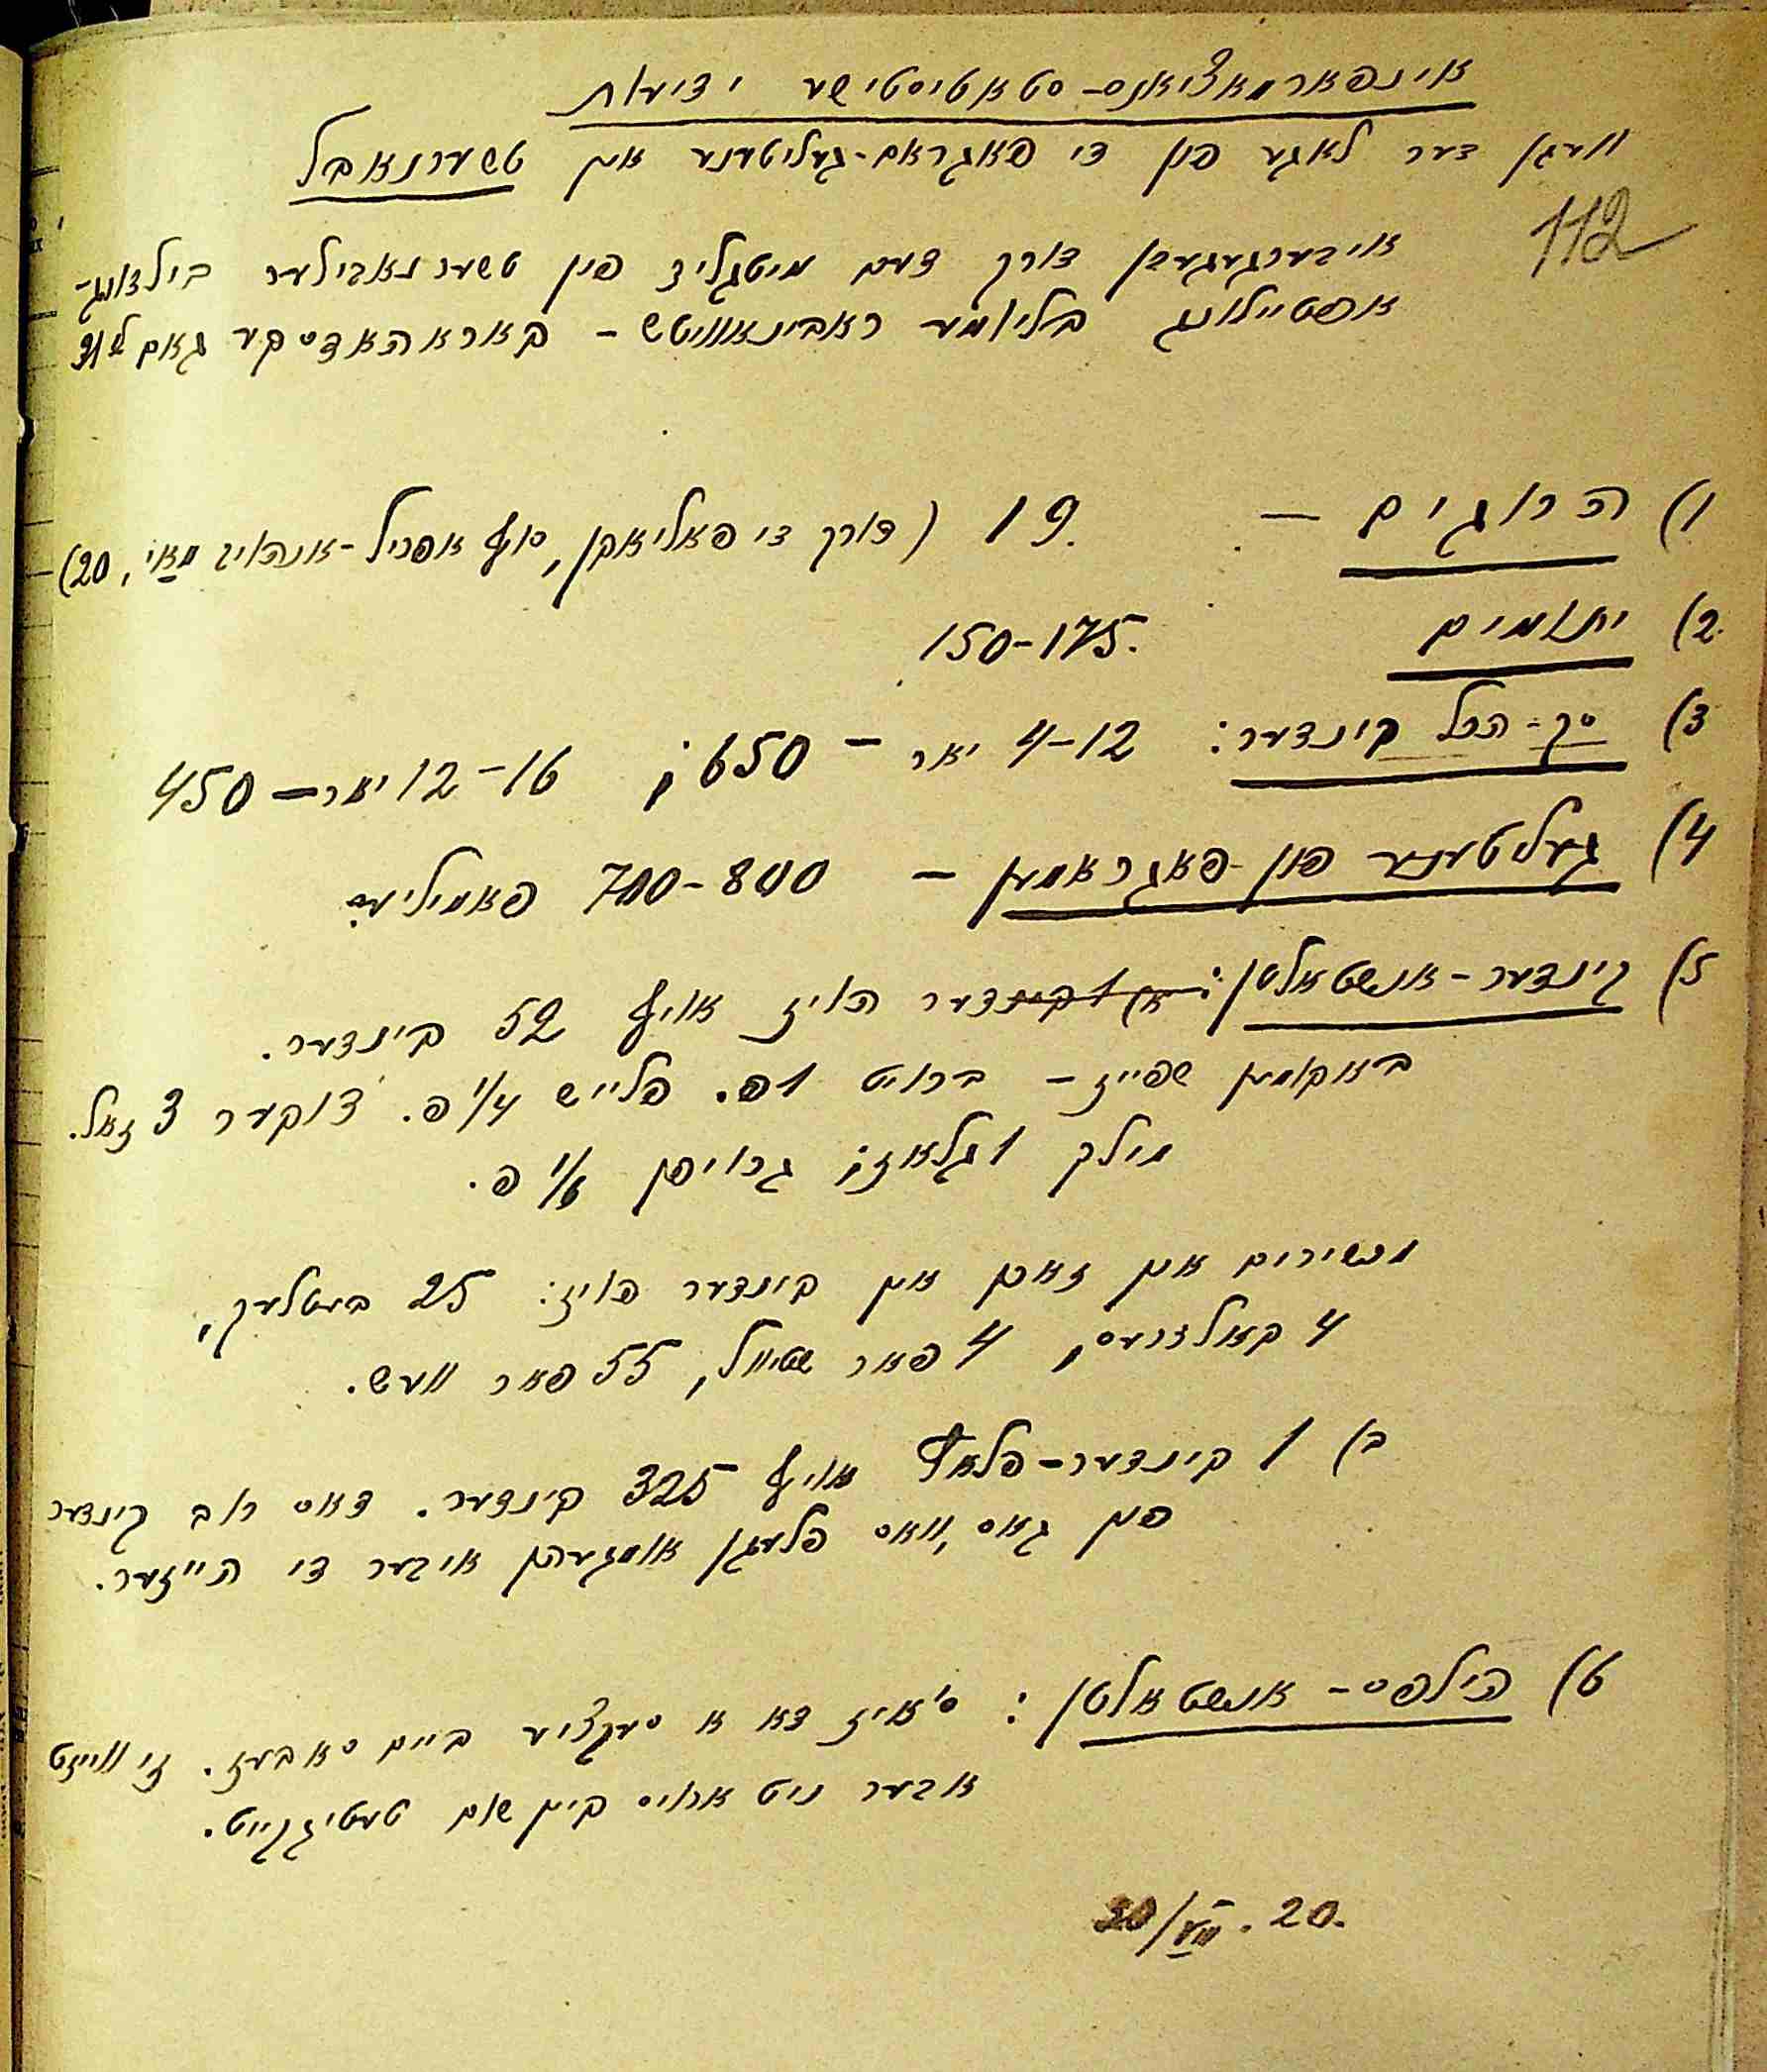 אינפארמאציאנס-סטאטיסטישע ידיעות
וועגן דער לאגע פון די פאגראם-געליטענע אין טשערנאבל
112
איבערגעגעבן דורך דעם מיטגליד פון טשערנאבילער בילדונג-
אפטיילונג בליומע ראבינאוויטש - באראהאדסקע גאס
1) הרוגים — 19. (דורך די פאליאקן, סוף אפריל-אנהויב מאי, 20)
2) יתומים 150-175.
3) סך-הכל קינדער: 4-12 יאר — 650; 12-16 יאר — 450
4) געליטענע פון פאגראמען — 700-800 פאמיליעס
5) קינדער-אנשטאלטן: א) 1 קינדער הויז אויף 52 קינדער.
באקומען שפייז - ברויט 1 פ. פלייש 1/4 פ. צוקער 3 זאל.
מילך 1 גלאז; גרויפן 1/8 פ.
מכשירים און זאכן אין קינדער הויז: 25 בעטלעך,
4 קאלדרעס, 4 פאר שטיוול, 55 פאר וועש.
ב) 1 קינדער-פלאץ אויף 325 קינדער. דאס רוב קינדער
פון גאס, וואס פלעגן אומגעהן איבער די הייזער.
6) הילפס-אנשטאלטן: ס'איז דא א סעקציע ביים סאבעז. זי ווייזט
אבער ניט ארויס קיין שום טעטיגקייט.
20/VIII. 20.